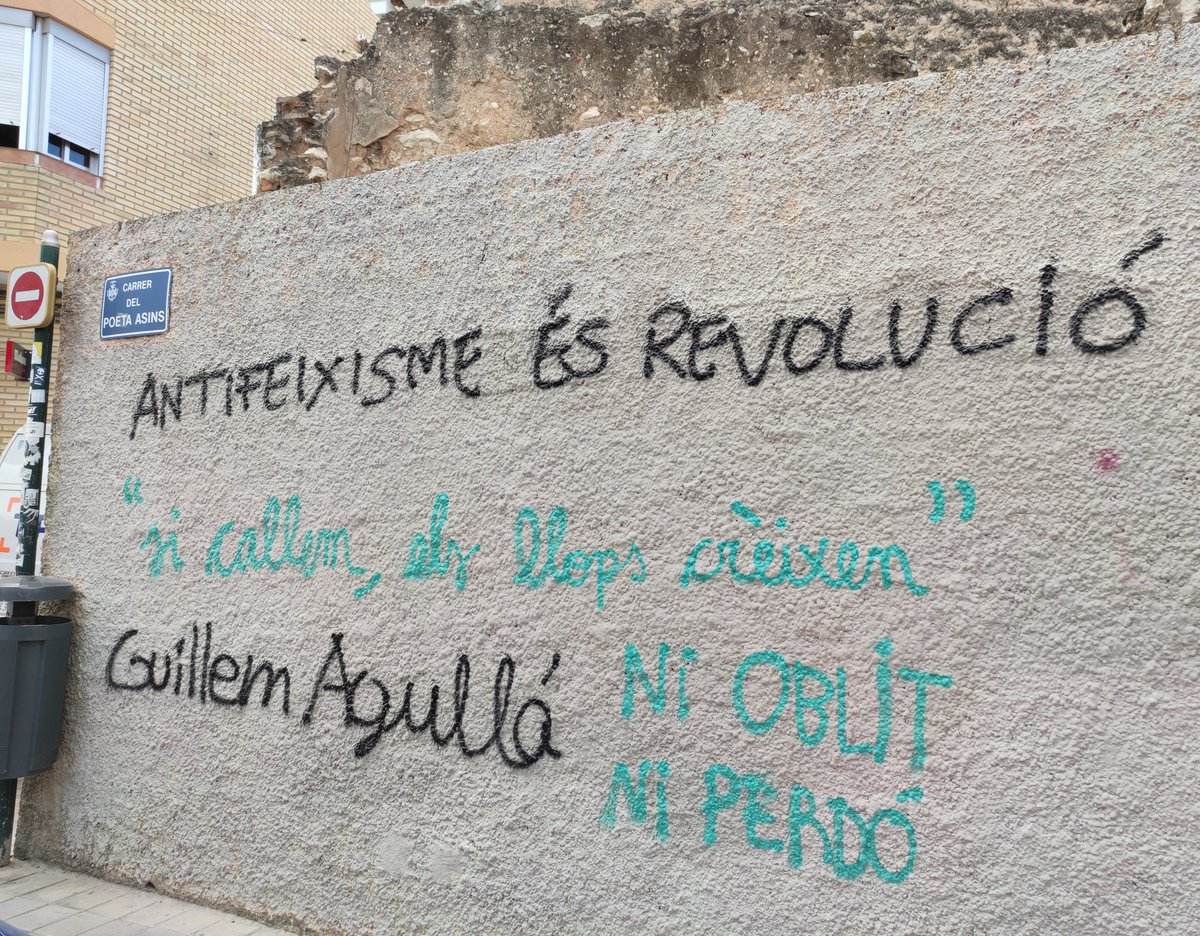 CARRER
DEL
POETA ASINS
ANTIFEIXISME ÉS REVOLUCIÓ
“si callem, els llops crèixen”
Guillem Agulló
NI OBLIT
NI PERDÓ